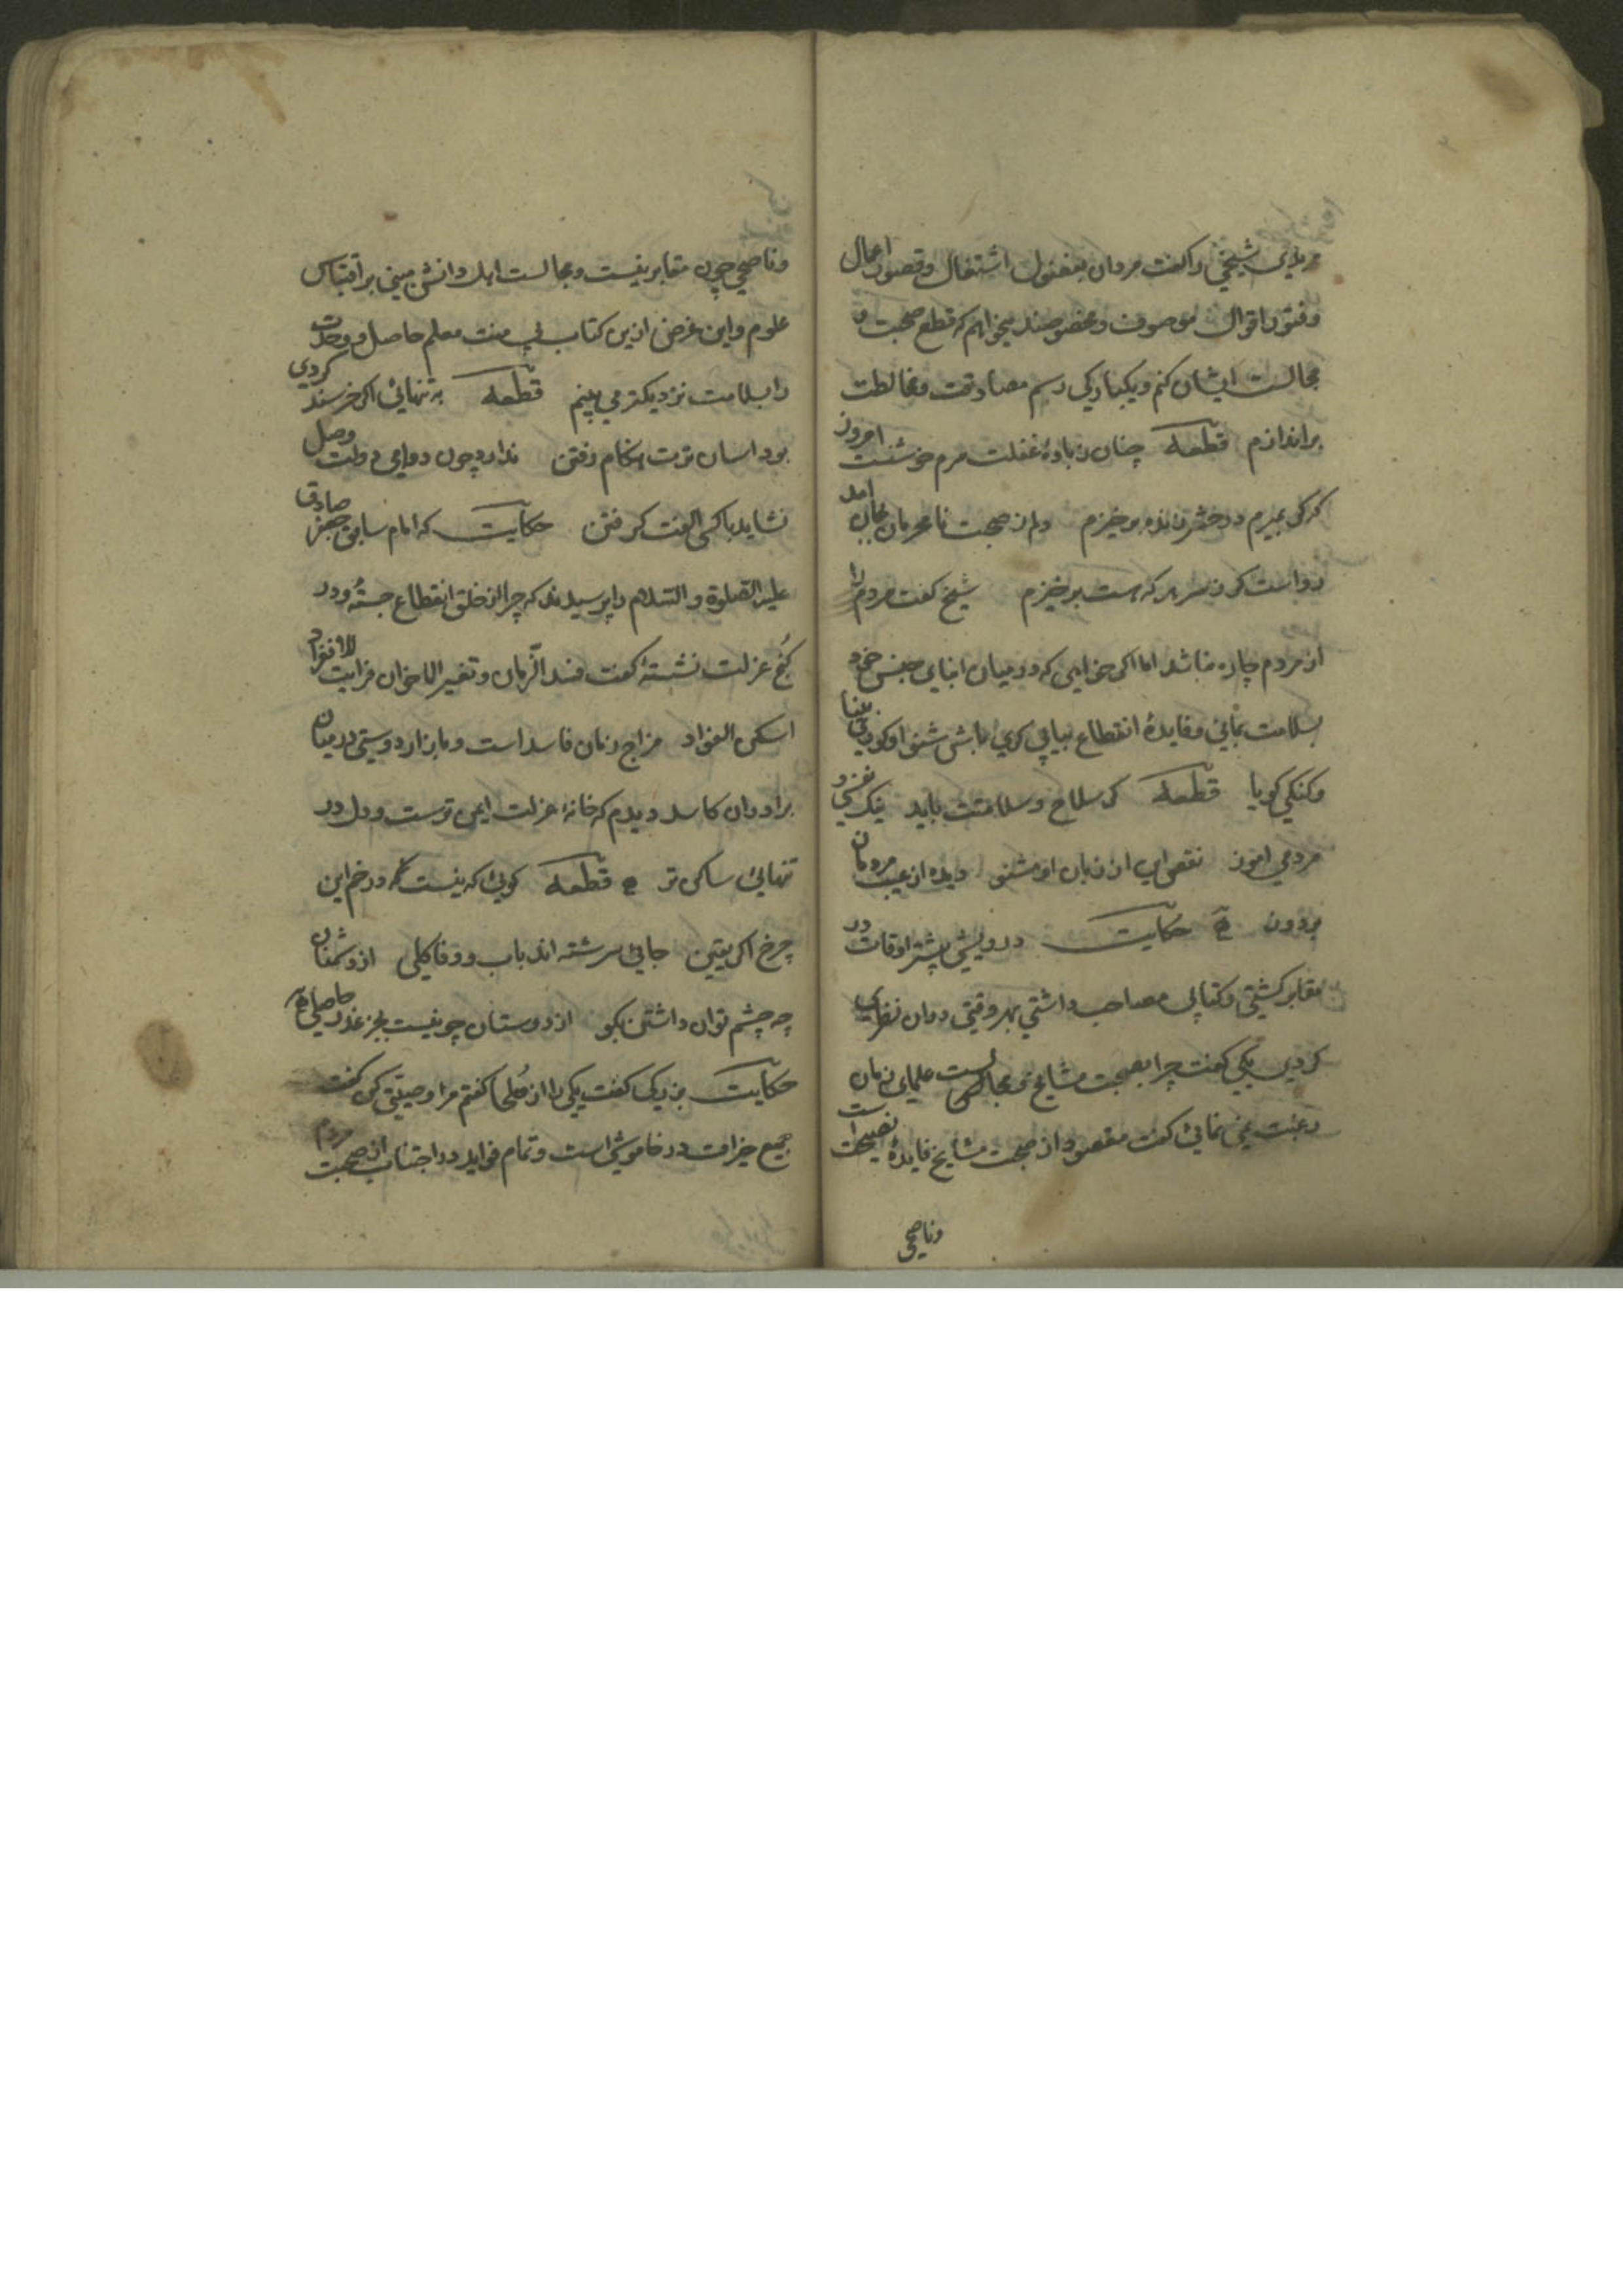 مریدی شیخی را کفت مردان بفضول اشتغال و قصور اعمال
و فتور اقوال موصوف و مخصوصند میخواهم که قطع صحبت و
مجالست ایشان کنم و یکبارکی رسم مصادقت و مخالطت
براندازم قطعه چنان زبادۀ غفلت سرم خوشست امروز
کر کر بمیرم در حشر زنده برخیزم دلم از صحبت نامحرمان بجان امد
رواست کر ز سر هر که هست برخیزم شیخ کفت مردم را
از مردم چاره نباشد اما اکر خواهی که در میان ابنای جنس خود
بسلامت بمانی و فایدۀ انقطاع بیابی کری باش شنوا و کوری بینا
و کنکی کویا قطعه کر سلاح و سلامتت باید نیک
مردمی اموز نقص این از زبان او مشنو دیده از عیب مردمان
بردوز حکایت درویشی بیشتر اوقات در
مقابر کشتی و کتابی مصاحب داشتی بهر وقتی دران نظر
کردی یکی کفت چرا بصحبت مشایخ و مجالست علمای زمان
رغبت نمی نمائی کفت مقصود از صحبت مشایخ فایدۀ نصیحت است
وناصحی
وناصحی چون مقابر نیست و مجالست اهل دانش مبنی بر اقتباس
علوم و این غرض ازین کتاب بی منت معلم حاصل و وحدت
را بسلامت نزدیکتر می بینم قطعه به تنهائی اکر خرسند کردی
بود اسان ترت هنکام رفتن ندارد چون دوامی دولت وصل
نشاید باکسی الفت کرفتن حکایت که امام سابق جعفر صادق
علیه الصلوة و السلام را پرسیدند که چرا از خلق انقطاع جستۀ و در
کنج عزلت نشستۀ کفت فسد الزمان و تغیر الاخوان فرایت الانفراد
اسکن الفواد مزاج زمان فاسد است و بازار دوستی در میان
برادران کاسد دیدم که خانۀ عزلت ایمن ترست و دل در
تنهائی ساکن تر قطعه کوئی که نیست در خم این
چرخ اکر یقین جائی سرشته اند باب و وفا کلی از دشمنان
چه چشم توان داشتن بکو از دوستان چو نیست بجز غدر حاصلی
حکایت بزرکی کفت یکی را از صلحا کفتم مرا وصیتی کن کفت
جمیع خیرات در خاموشی است و تمام فواید در اجتناب از صحبت مردم